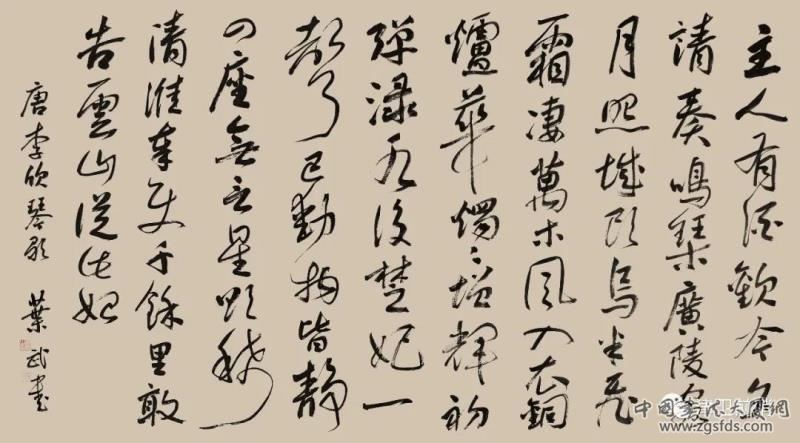 主人有酒歡今夕
請奏鳴琹廣陵客
月照城頭烏半飛
霜淒萬木風入衣銅
爐華燭〻增輝初
彈淥水後楚妃一
聲已動物皆靜
四座無言星欲稀
清淮奉使千餘里敢
告雲山從此始
唐李欣琴歌 葉武書
www.zgsfds.com